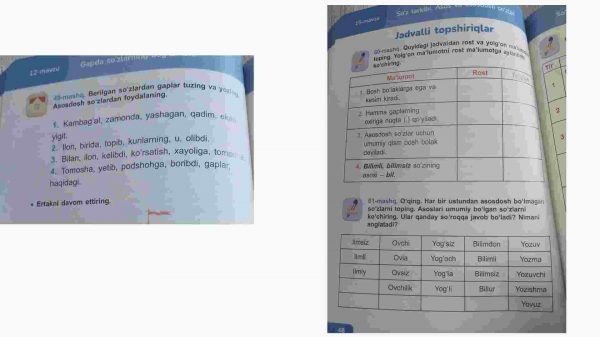 12-mavzu
Gapda so'zlarning bog'
49-mashq. Berilgan so'zlardan gaplar tuzing va yozing.
Asosdosh so'zlardan foydalaning.
1. Kambag'al, zamonda, yashagan, qadim, ekan,
yigit.
2. Ilon, birida, topib, kunlarning, u, olibdi.
3. Bilan, ilon, kelibdi, ko'rsatish, xayoliga, tomosha,
4. Tomosha, yetib, podshohga, boribdi, gaplar,
haqidagi.
• Ertakni davom ettiring.
15-mavzu
So'z tarkibi. Asos va
Jadvalli topshiriqlar
60-mashq. Quyidagi jadvaldan rost va yolg'on ma'lumotni
toping. Yolg'on ma'lumotni rost ma'lumotga aylantirib
ko'chiring.
Ma'lumot Rost
1. Bosh bo'laklarga ega va
kesim kiradi.
2. Hamma gaplarning
oxiriga nuqta (.) qo'yiladi.
3. Asosdosh so'zlar uchun
umumiy qism bosh bo'lak
deyiladi.
4. Bilimli, bilimsiz so'zining
asosi – bil.
61-mashq. O'qing. Har bir ustundan asosdosh bo'lmagan
so'zlarni toping. Asoslari umumiy bo'lgan so'zlarni
ko'chiring. Ular qanday so'roqqa javob bo'ladi? Nimani
anglatadi?
Ilmsiz Ovchi Yog'siz Bilimdon Yozuv
Ilmli Ovla Yog'och Bilimli Yozma
Ilmiy Ovsiz Yog'la Bilimsiz Yozuvchi
Ovchilik Yog'li Billur Yozishma
Yovuz
48